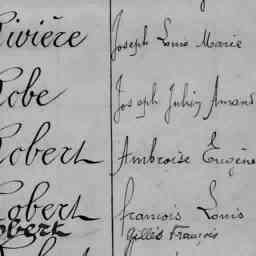 Rivière Joseph Louis Marie
Robe Joseph Julien Amand
Robert Ambroise Eugène
Robert François Louis
Robert Gilles François